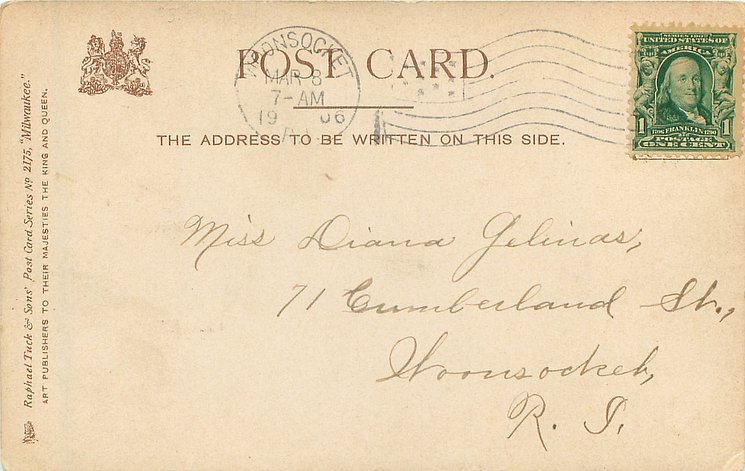 POST CARD.
WOONSOCKET
MAR 8
7-AM
19 06
R.I.
SERIES 1902
UNITED STATES OF
AMERICA
1 1706 FRANKLIN 1790 1
POSTAGE
ONE CENT
THE ADDRESS TO BE WRITTEN ON THIS SIDE.
Miss Diana Gelinas,
71 Cumberland St.,
Woonsocket,
R. I.
Raphael Tuck & Sons' Post Card Series No 2175, "Milwaukee."
ART PUBLISHERS TO THEIR MAJESTIES THE KING AND QUEEN.